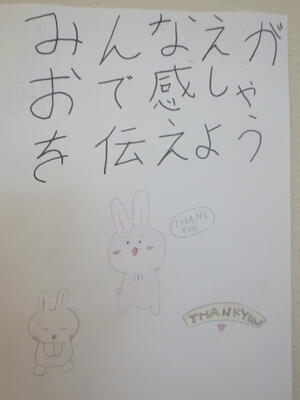 みんなえが
おで感しゃ
を伝えよう
THANK
YOU
THANKYOU